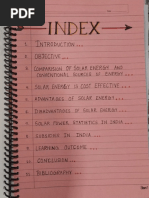 INDEX
1. INTRODUCTION ...
2. OBJECTIVE ...
3. COMPARISON OF SOLAR ENERGY AND
CONVENTIONAL SOURCES OF ENERGY ...
4. SOLAR ENERGY IS COST EFFECTIVE ...
5. ADVANTAGES OF SOLAR ENERGY ...
6. DISADVANTAGES OF SOLAR ENERGY ...
7. SOLAR POWER STATISTICS IN INDIA ...
8. IN INDIA ...
9. LEARNING OUTCOME ...
10. CONCLUSION ...
11. BIBLIOGRAPHY ...